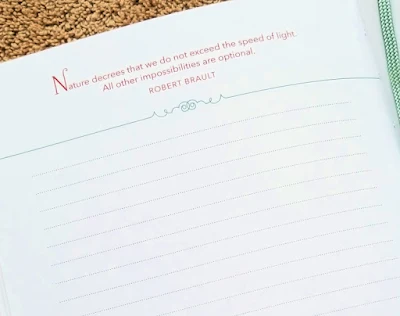 Nature decrees that we do not exceed the speed of light.
All other impossibilities are optional.
ROBERT BRAULT